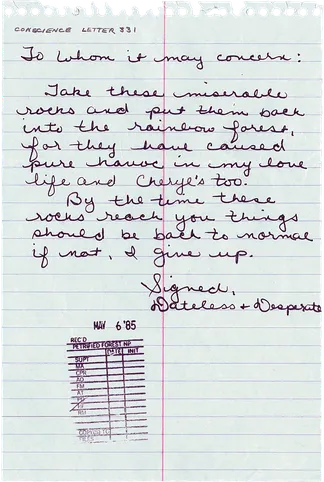 CONSCIENCE LETTER 331
To whom it may concern:
Take these miserable
rocks and put them back
into the rainbow forest,
for they have caused
pure havoc in my love
life and Cheryl's too.
By the time these
rocks reach you things
should be back to normal
if not, I give up.
Signed,
Dateless + Desperate
MAY 6 '85
REC'D
PETRIFIED FOREST NP
DATE INIT
SUPT
CPR
AO
FM
AT
RM